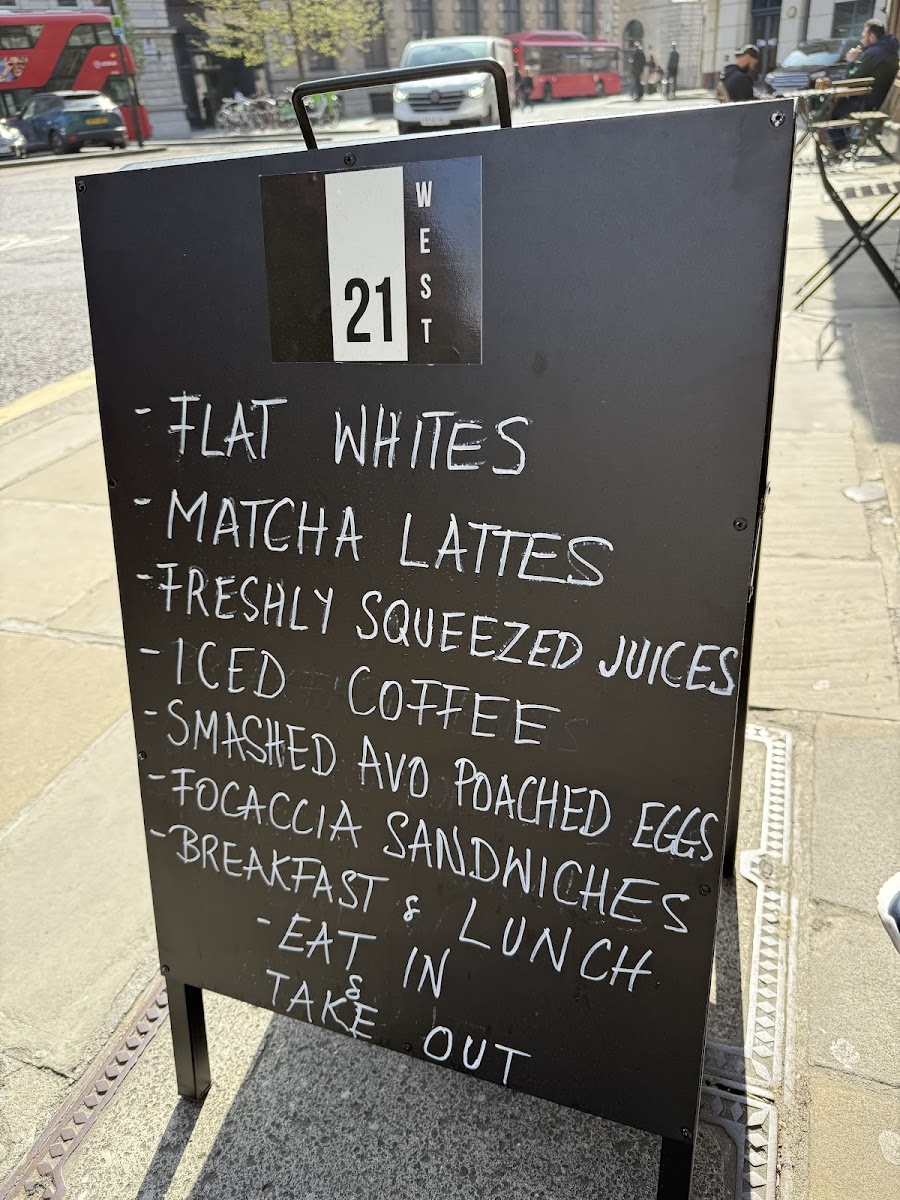 21 WEST
- FLAT WHITES
- MATCHA LATTES
- FRESHLY SQUEEZED JUICES
- ICED COFFEE
- SMASHED AVO POACHED EGGS
- FOCACCIA SANDWICHES
- BREAKFAST & LUNCH
- EAT IN
&
TAKE OUT